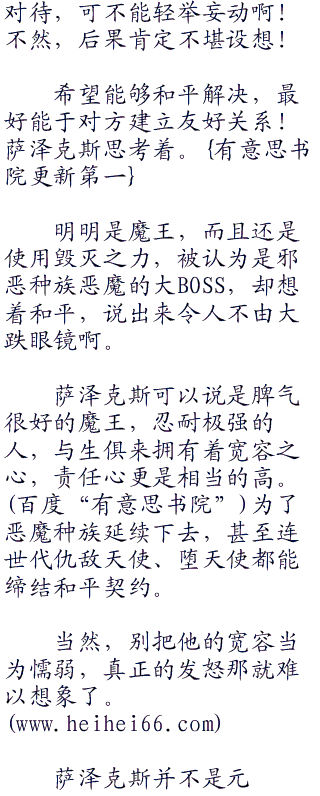 对待，可不能轻举妄动啊！
不然，后果肯定不堪设想！
希望能够和平解决，最
好能于对方建立友好关系！
萨泽克斯思考着。{有意思书
院更新第一}
明明是魔王，而且还是
使用毁灭之力，被认为是邪
恶种族恶魔的大BOSS，却想
着和平，说出来令人不由大
跌眼镜啊。
萨泽克斯可以说是脾气
很好的魔王，忍耐极强的
人，与生俱来拥有着宽容之
心，责任心更是相当的高。
(百度“有意思书院”)为了
恶魔种族延续下去，甚至连
世代仇敌天使、堕天使都能
缔结和平契约。
当然，别把他的宽容当
为懦弱，真正的发怒那就难
以想象了。
(www.heihei66.com)
萨泽克斯并不是元